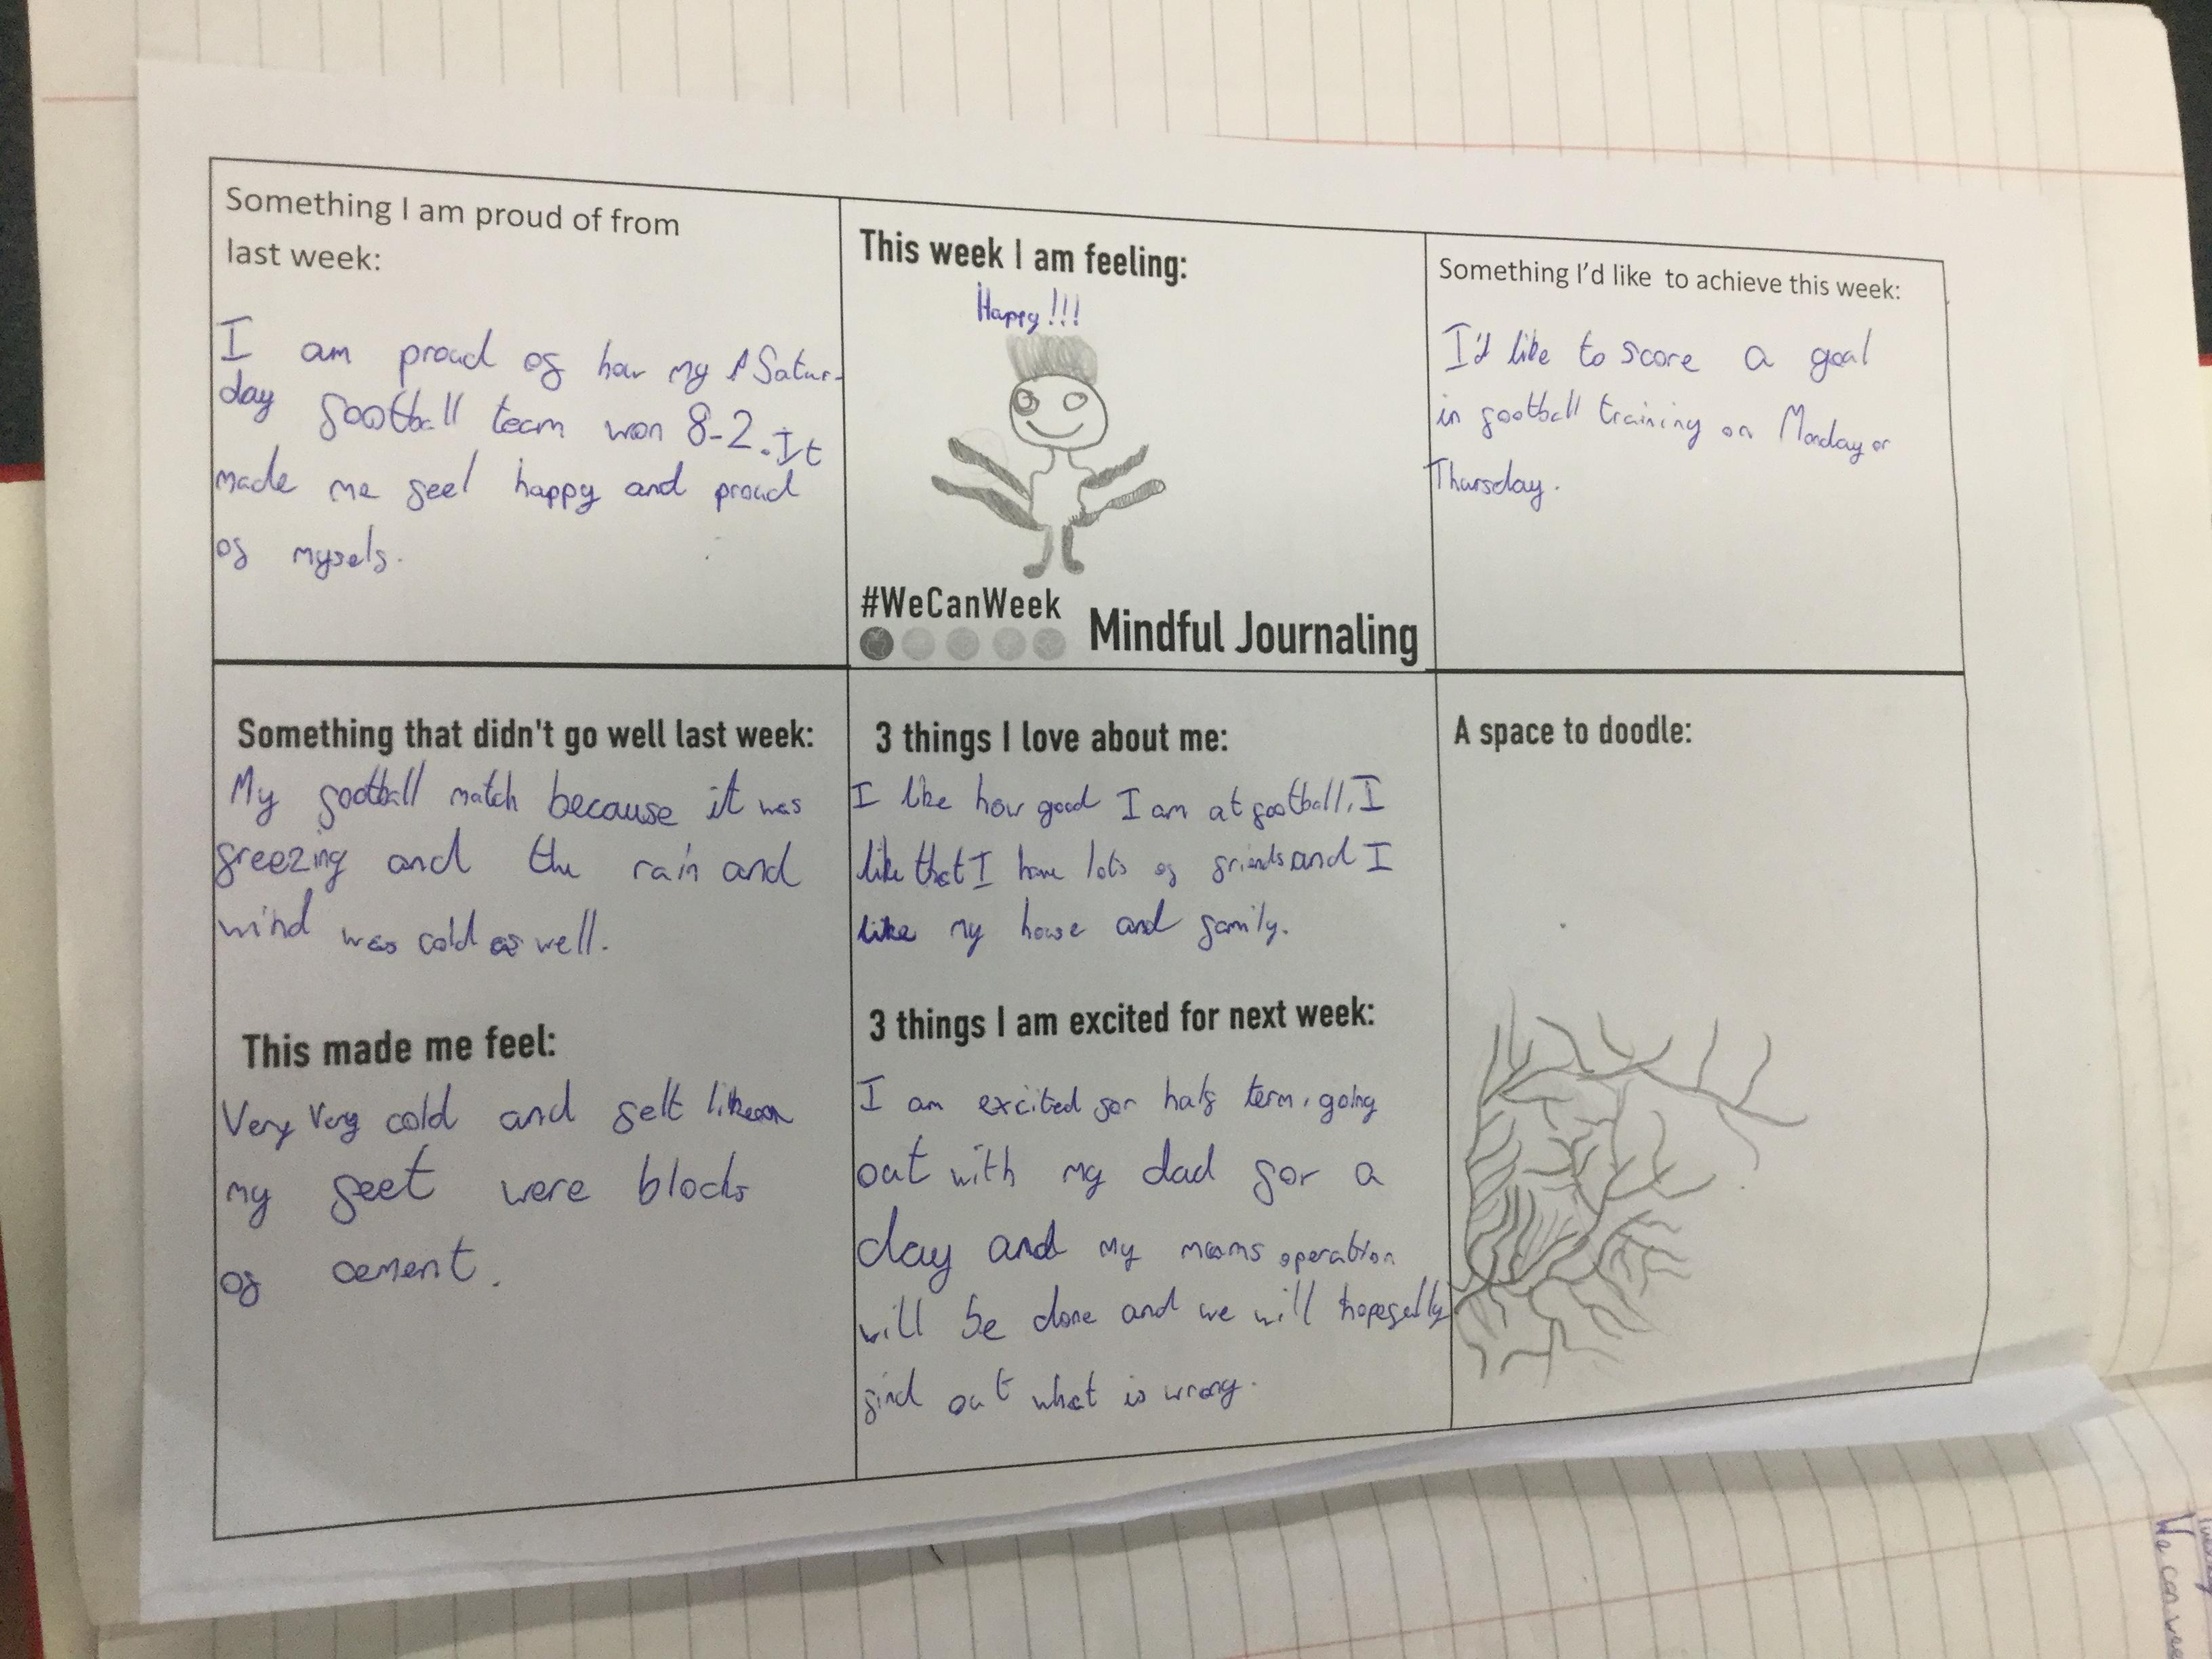 Something I am proud of from
last week:
I am proud of how my Satur-
day football team won 8-2. It
made me feel happy and proud
of myself.
This week I am feeling:
Happy!!!
#WeCanWeek
Mindful Journaling
Something I'd like to achieve this week:
I'd like to score a goal
in football training on Monday or
Thursday.
Something that didn't go well last week:
My football match because it was
freezing and the rain and
wind was cold as well.
This made me feel:
Very Very cold and felt like
my feet were blocks
of cement.
3 things I love about me:
I like how good I am at football, I
like that I have lots of friends and I
like my house and family.
3 things I am excited for next week:
I am excited for half term, going
out with my dad for a
day and my mams operation
will be done and we will hopefully
find out what is wrong.
A space to doodle:
We can wee